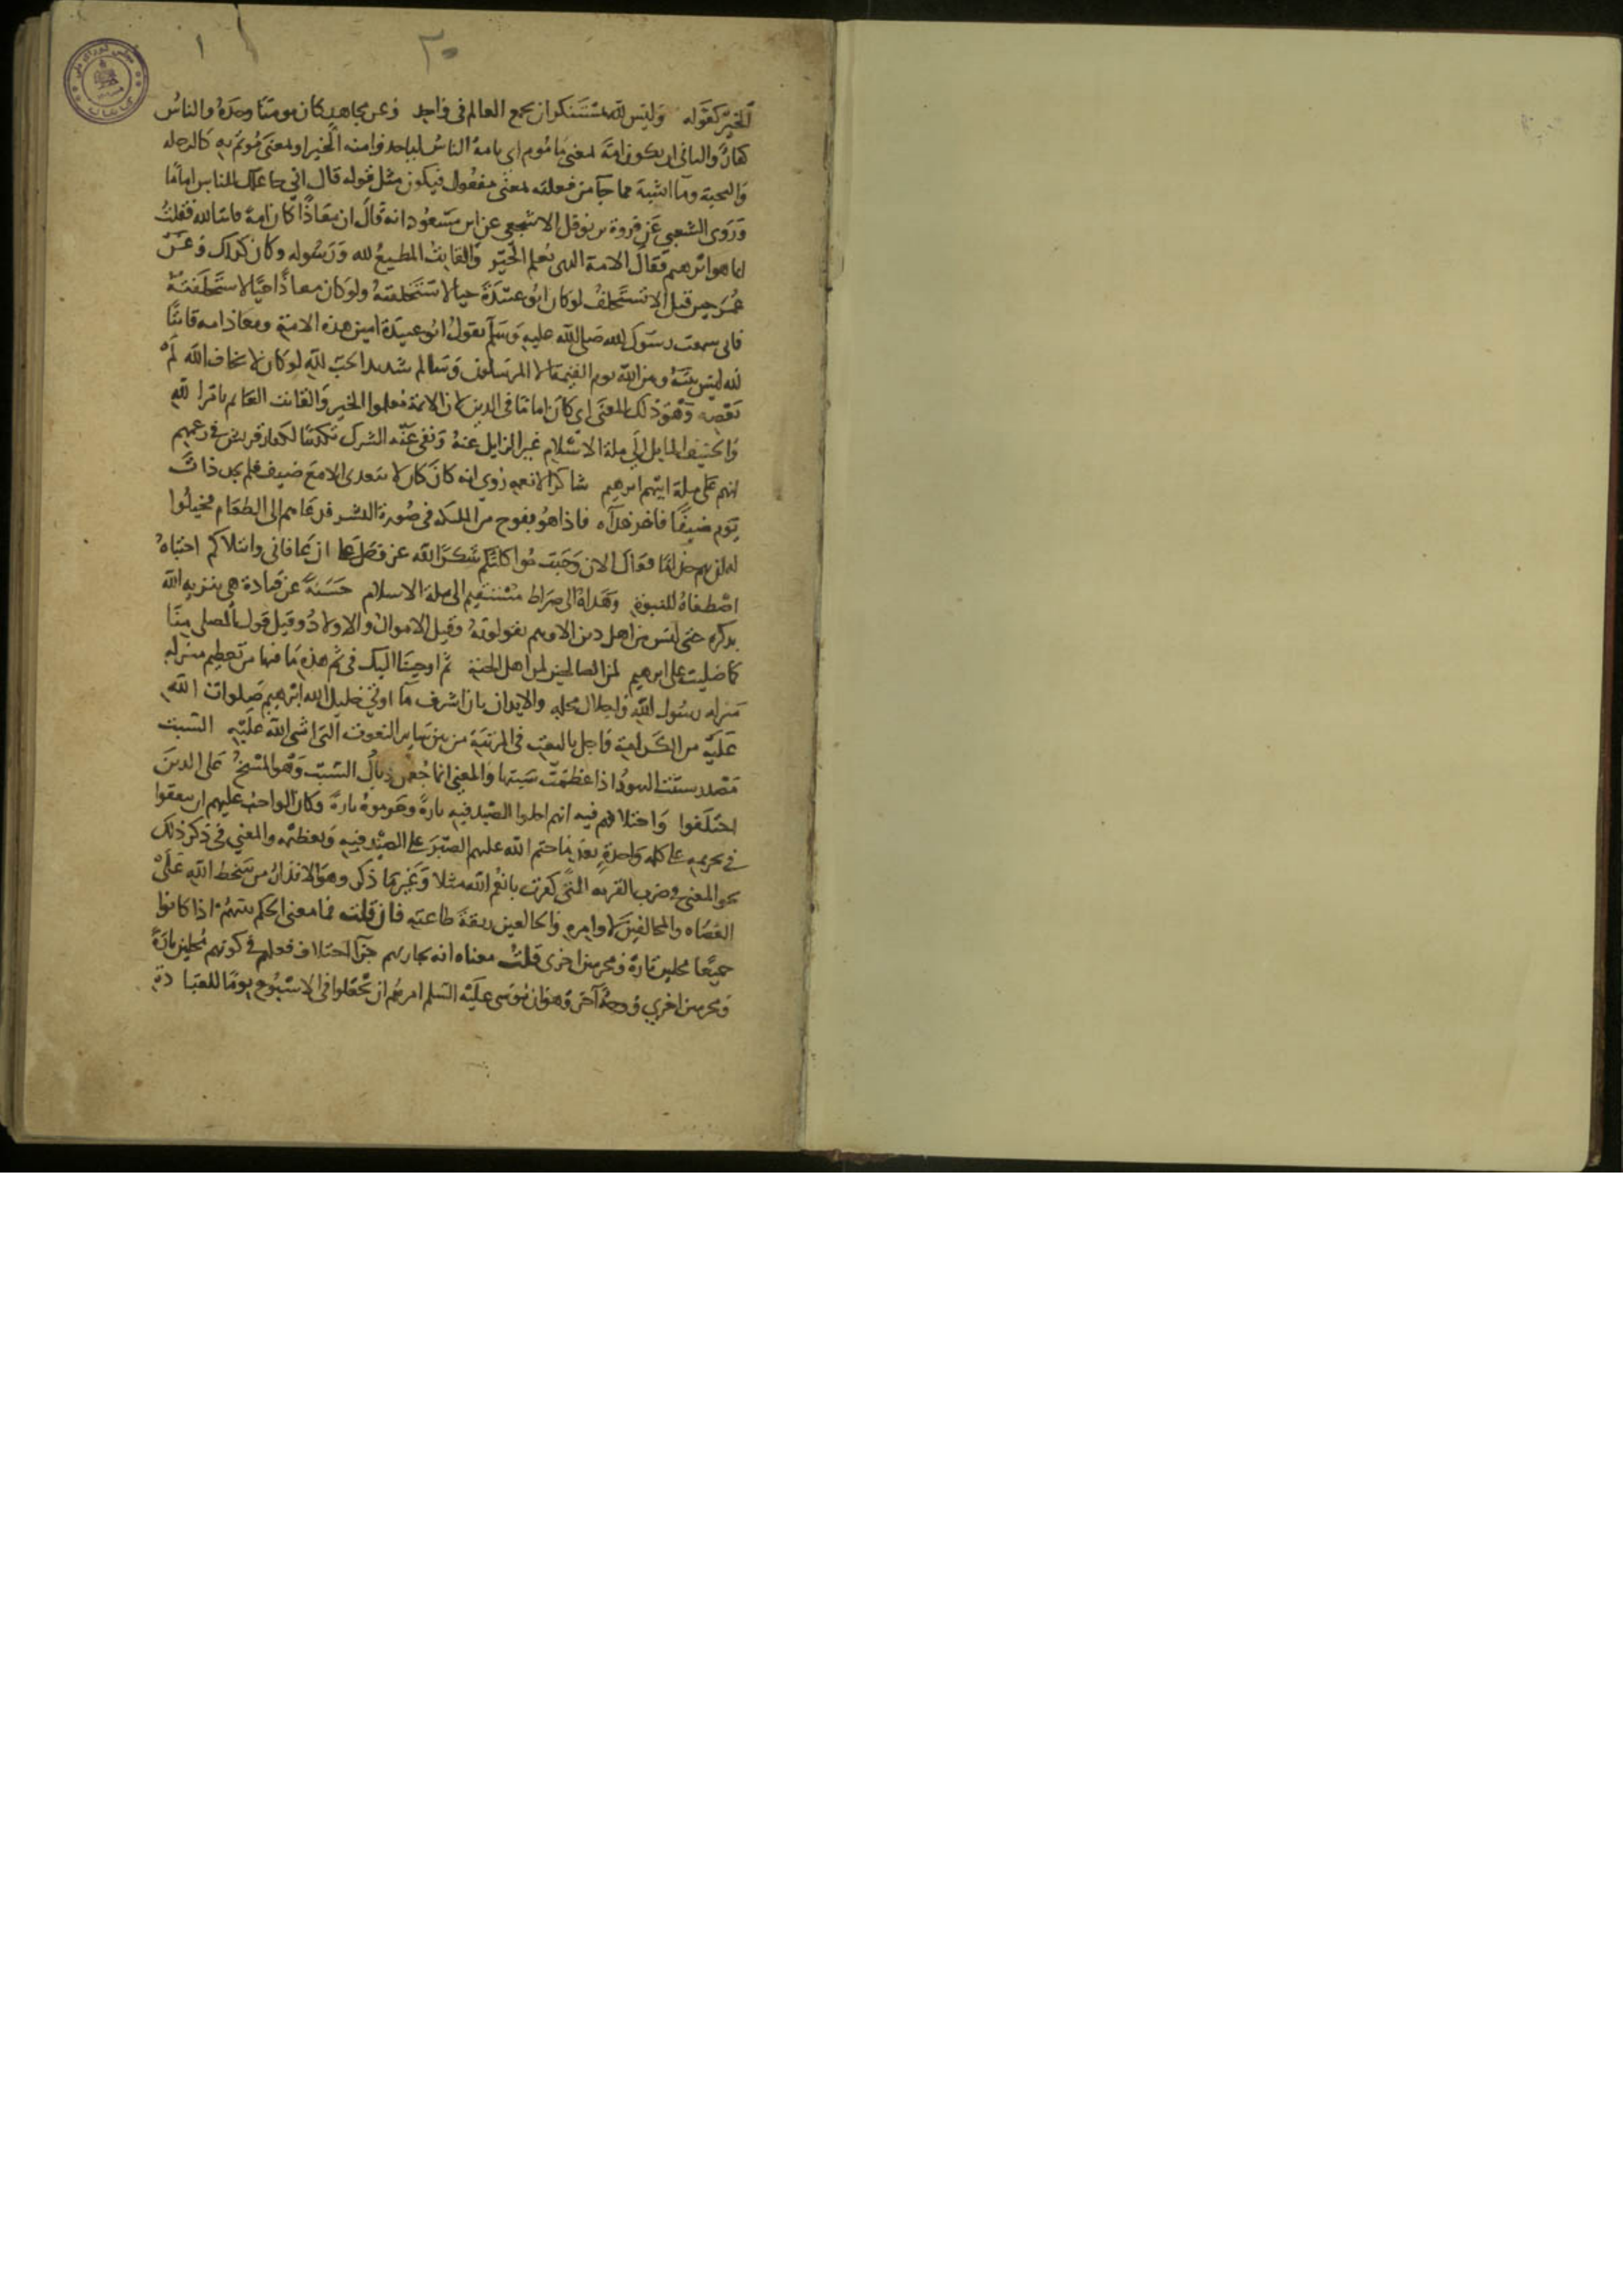 الخير كقوله وليس لله بمستنكر ان يجمع العالم في واحد وعن مجاهد كان مومنا وحده والناس
كفار والثاني ان يكون امة بمعنى ماموم اي يامه الناس لياخذوا منه الخير او بمعنى موتم به كالرحله
والنخبة وما اشبه مما جا من فعلة بمعنى مفعول فيكون مثل قوله قال اني جاعلك للناس اماما
وروى الشعبي عن فروة بن نوفل الاشجعي عن ابن مسعود انه قال ان معاذا كان امة قانتا لله فقلت
انما هو ابرهيم فقال الامة الذي يعلم الخير والقانت المطيع لله ورسوله وكان كذلك وعن
عمر حين قيل الا تستخلف لو كان ابو عبيدة حيا لاستخلفته ولو كان معاذا حيا لاستخلفته
فاني سمعت رسول الله صلى الله عليه وسلم يقول ابو عبيدة امين هذه الامة ومعاذ امه قانتا
لله ليس بينه وبين الله يوم القيمة الا المرسلون وسالم شديد الحب لله لو كان لا يخاف الله لم
يعصه وهو ذلك المعنى اي كان اماما في الدين لان الايمة معلموا الخير والقانت القايم بامر الله
والحنيف المايل الى ملة الاسلام غير الزايل عنه ونفى عنه الشرك تكذيبا لكفار قريش في زعمهم
انهم على ملة ابيهم ابرهيم شاكرا لانعمه روي انه كان لا يتغدى الا مع ضيف فلم يجد ذات
يوم ضيفا فاخر غداه فاذا هو بفوج من الملكه في صورة البشر فدعاهم الى الطعام فخيلوا
له ان بهم جذاما فقال الان وجبت مواكلتكم شكرا لله عز وجل على ان عافاني وابتلاكم اجتباه
اصطفاه للنبوة وهداه الى صراط مستقيم الى ملة الاسلام حسنة عن قتادة هي تنويه الله
بذكره حتى ليس من اهل دين الا وهم يتولونه وقيل الاموال والاولاد وقيل قول المصلي منا
كما صليت على ابرهيم لمن الصالحين لمن اهل الجنة ثم اوحينا اليك في ثم هذه ما فيها من تعظيم منزله
منزله رسول الله واجلال محله والايذان بان اشرف ما اوتي خليل الله ابرهيم صلوات الله
عليه من الكرامة واجل ما اوتي
مصدر سبتت اليهود اذا عظمت سبتها والمعنى انما جعل وبال السبت وهو المسخ على الذين
اختلفوا واختلافهم فيه انهم احلوا الصيد فيه تارة وحرموه تارة وكان الواجب عليهم ان يتفقوا
في تحريمه على كلمه واحدة بعد ما حتم الله عليهم الصبر على الصيد فيه وتعظيمه والمعنى في ذكر ذلك
نحو المعنى في ضرب القريه التي كفرت بانعم الله مثلا وغير ما ذكر وهو الانذار من سخط الله على
العصاه والمخالفين لاوامره والخالعين ربقة طاعته فان قلت فما معنى الحكم بينهم اذا كانوا
جميعا محلين تارة ومحرمين اخرى قلت معناه انه يجازيهم جزا اختلاف فعلهم في كونهم محلين تارة
ومحرمين اخري ووجه آخر وهو ان موسى عليه السلم امرهم ان يجعلوا في الاسبوع يوما للعبادة